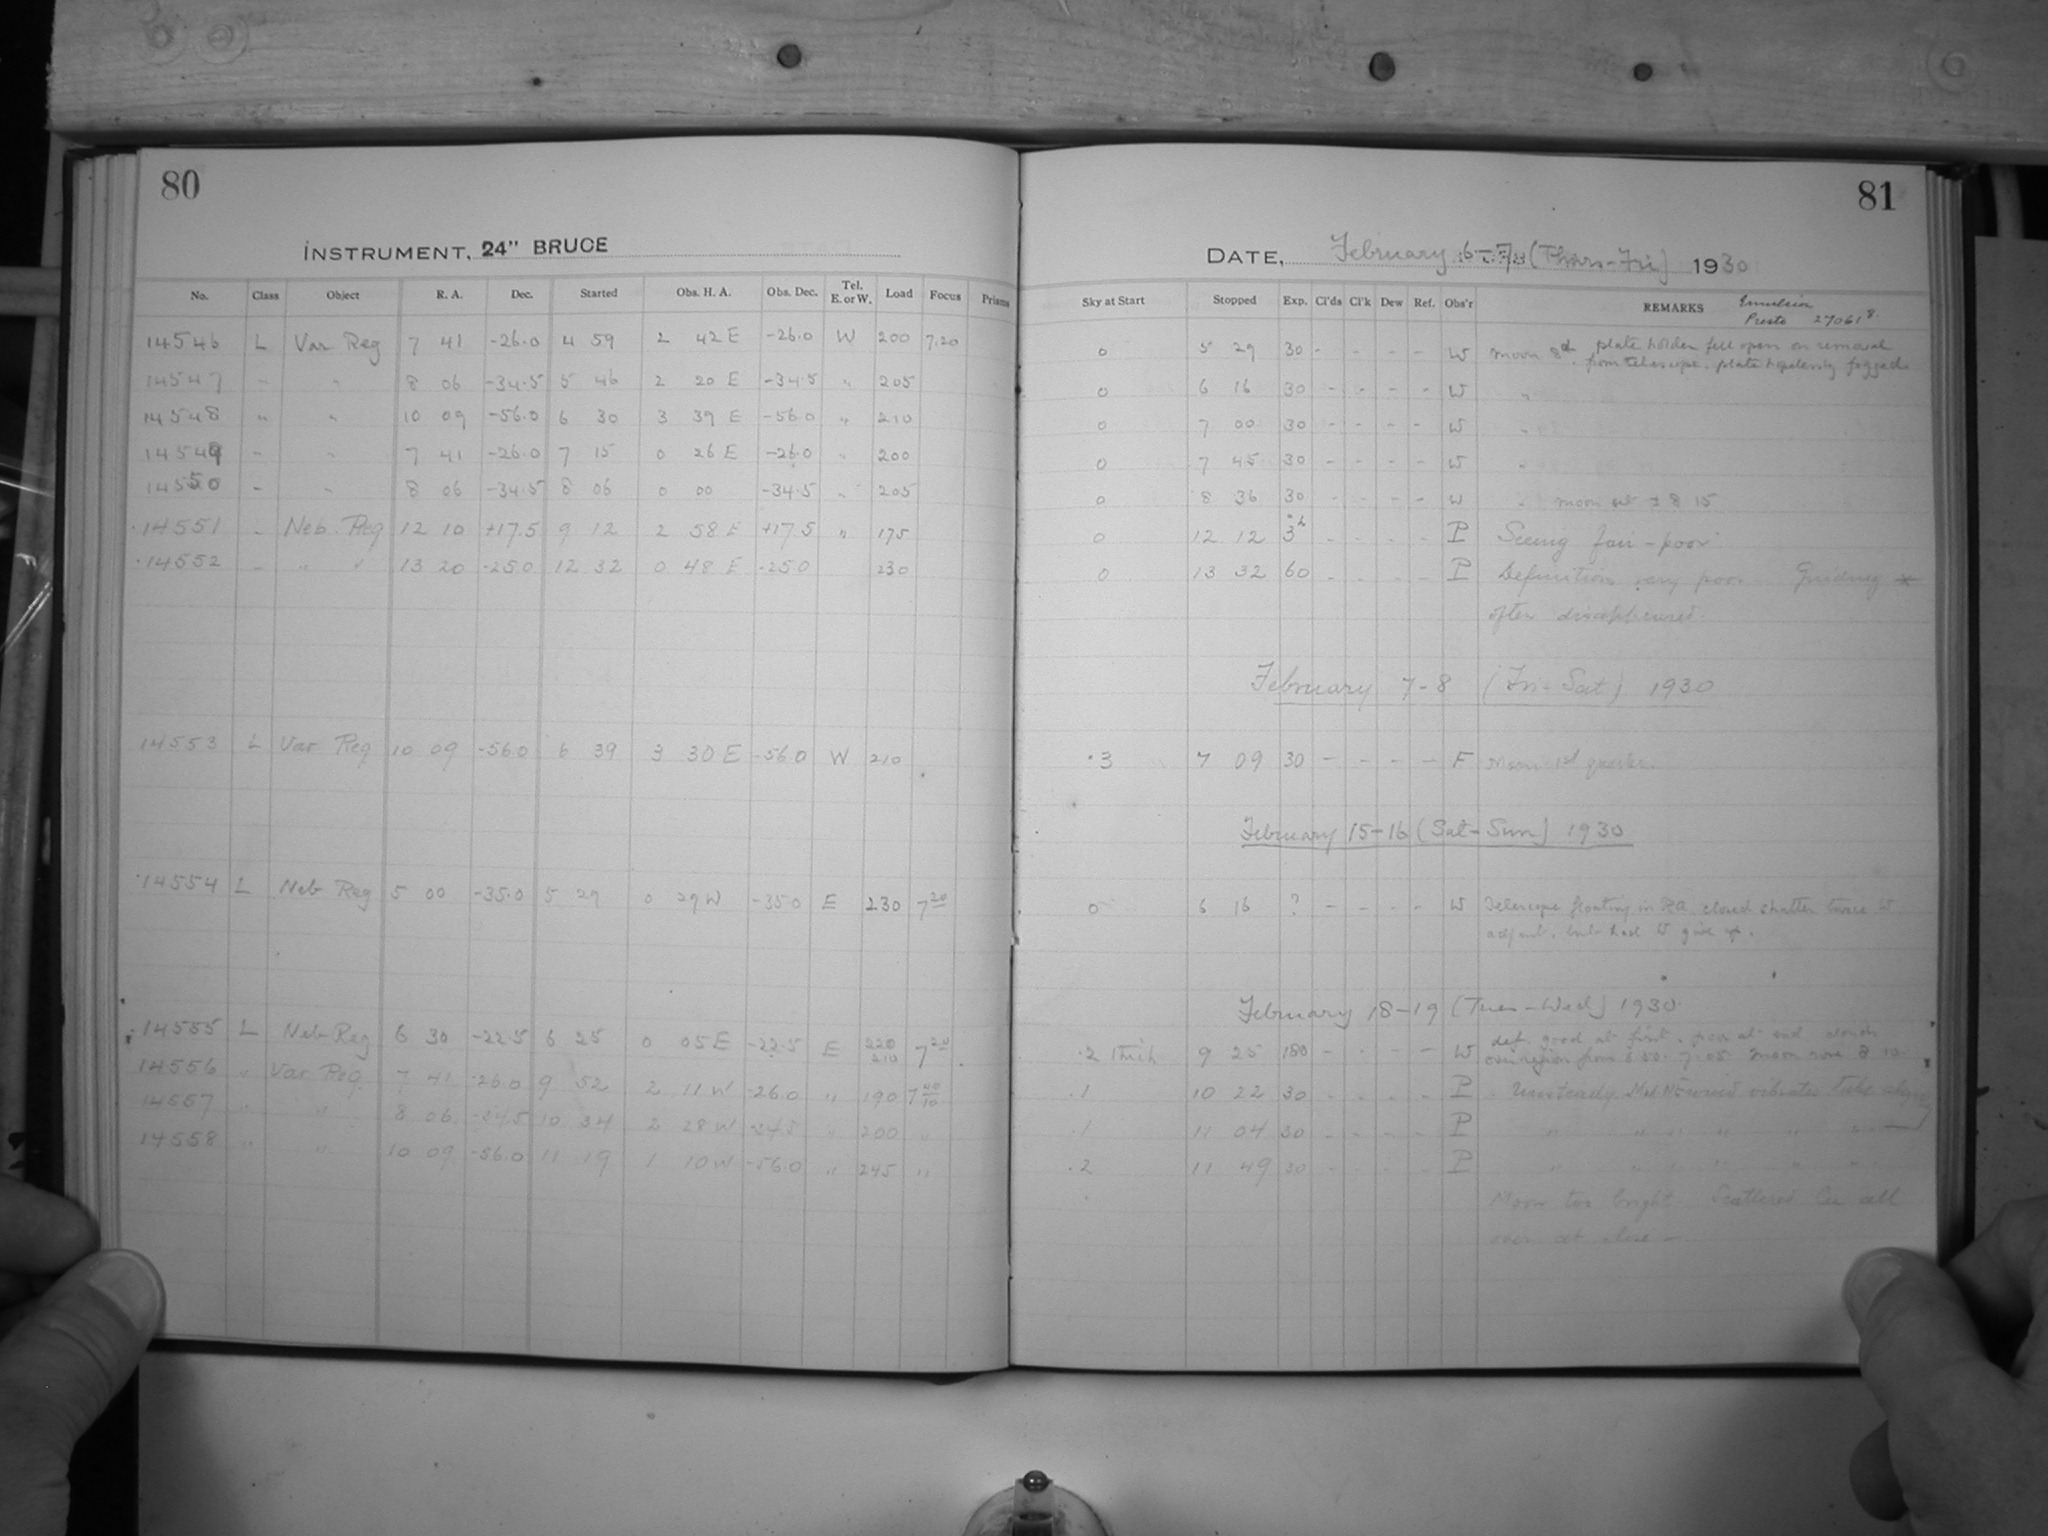 80
INSTRUMENT, 24" BRUCE
No. Class Object R. A. Dec. Started Obs. H. A. Obs. Dec. Tel. E. or W. Load Focus Prisms
14546 L Var Reg 7 41 -26.0 4 59 2 42 E -26.0 W 200 7.20
14547 " " 8 06 -34.5 5 46 2 20 E -34.5 " 205
14548 " " 10 09 -56.0 6 30 3 39 E -56.0 " 210
14549 " " 7 41 -26.0 7 15 0 26 E -26.0 " 200
14550 " " 8 06 -34.5 8 06 0 00 -34.5 " 205
14551 " Neb. Reg 12 10 +17.5 9 12 2 58 E +17.5 " 175
14552 " " " 13 20 -25.0 12 32 0 48 E -25.0 230
14553 L Var Reg 10 09 -56.0 6 39 3 30 E -56.0 W 210
14554 L Neb Reg 5 00 -35.0 5 29 0 29 W -35.0 E 230 7 20
14555 L Neb Reg 6 30 -22.5 6 25 0 05 E -22.5 E 220 210 7 20
14556 " Var Reg 7 41 -26.0 9 52 2 11 W -26.0 " 190 7
14557 " " 8 06 -34.5 10 34 2 28 W -34.5 " 200 "
14558 " " 10 09 -56.0 11 19 1 10 W -56.0 " 245 "
81
DATE, February 6-7 (Thurs-Fri) 1930
Sky at Start Stopped Exp. Cl'ds Cl'k Dew Ref. Obs'r REMARKS Emulsion
Presto 270618
0 5 29 30 - - - - W Moon 8d. plate holder fell open on removal
from telescope. plate hopelessly fogged.
0 6 16 30 - - - - W "
0 7 00 30 - - - - W "
0 7 45 30 - - - - W "
0 8 36 30 - - - - W " moon set ± 8 15
0 12 12 3h - - - - P Seeing fair-poor
0 13 32 60 - - - - P Definition very poor. Guiding *
often disappeared.
February 7-8 (Fri-Sat) 1930
.3 7 09 30 - - - - F Moon 1st quarter.
February 15-16 (Sat-Sun) 1930
0 6 16 ? - - - - W Telescope floating in RA closed shutter twice to
adjust, but had to give up.
February 18-19 (Tues-Wed) 1930
.2 thick 9 25 180 - - - - W def. good at first, poor at end clouds
over region from 6.50 - 7.05. moon rose 8 10.
.1 10 22 30 - - - - P Unsteady. vibrates
.1 11 04 30 - - - - P " " " " "
.2 11 49 30 - - - - P " " " " "
Moon too bright. Scattered Cu all
over at close -